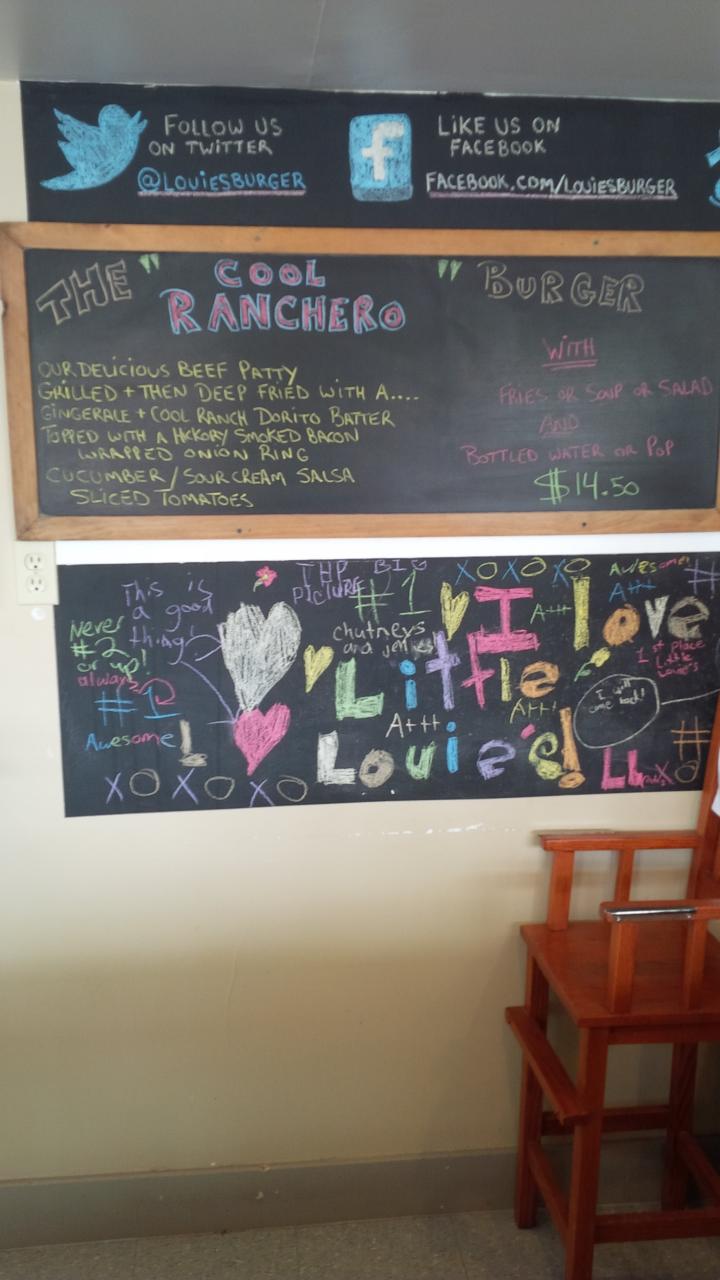 FOLLOW US
ON TWITTER
@LOUIESBURGER
LIKE US ON
FACEBOOK
FACEBOOK.COM/LOUIESBURGER
THE "COOL
RANCHERO" BURGER
OUR DELICIOUS BEEF PATTY
GRILLED + THEN DEEP FRIED WITH A....
GINGERALE + COOL RANCH DORITO BATTER
TOPPED WITH A HICKORY SMOKED BACON
WRAPPED ONION RING
CUCUMBER/SOUR CREAM SALSA
SLICED TOMATOES
WITH
FRIES OR SOUP OR SALAD
AND
BOTTLED WATER OR POP
$14.50
This is
a good
thing!
Never
#2
or up!
always
#1
Awesome!
XOXOXO
THE BIG
PICTURE
#1
chutneys
and jellies
XOXOXO
Awesome!
A++
#
I love
A++
Little
A++
A+++
Louie's!
1st place
Little
Louie's
I will
come back!
#
LL
XO